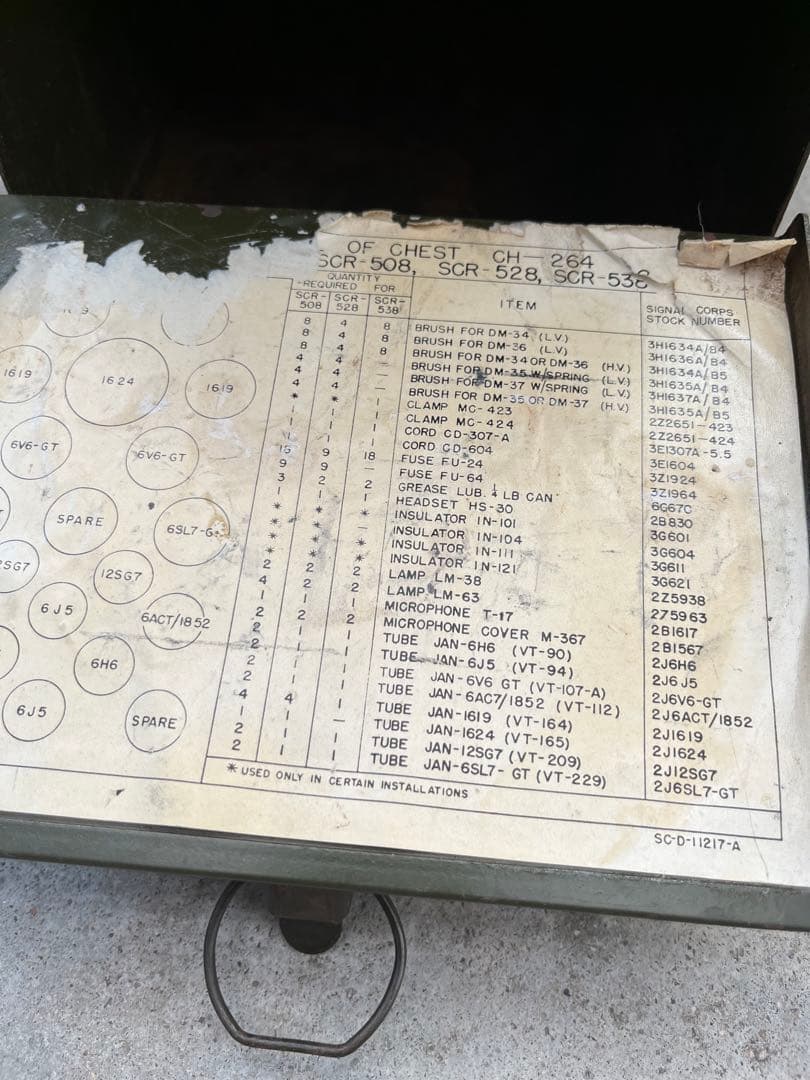 OF CHEST CH-264
SCR-508, SCR-528, SCR-538
QUANTITY
REQUIRED FOR
SCR-508 SCR-528 SCR-538 ITEM SIGNAL CORPS STOCK NUMBER
8 4 8 BRUSH FOR DM-34 (L.V.) 3H1634A/B4
8 4 8 BRUSH FOR DM-36 (L.V.) 3H1636A/B4
8 4 8 BRUSH FOR DM-34 OR DM-36 (H.V.) 3H1634A/B5
4 4 — BRUSH FOR DM-35 W/SPRING (L.V.) 3H1635A/B4
4 4 — BRUSH FOR DM-37 W/SPRING (L.V.) 3H1637A/B4
4 4 — BRUSH FOR DM-35 OR DM-37 (H.V.) 3H1635A/B5
* * CLAMP MC-423 2Z2651-423
CLAMP MC-424 2Z2651-424
CORD CD-307-A 3E1307A-5.5
CORD CD-604 3E1604
15 9 18 FUSE FU-24 3Z1924
9 9 — FUSE FU-64 3Z1964
3 2 2 GREASE LUB. ¼ LB CAN 6G670
1 1 1 HEADSET HS-30 2B830
* * * INSULATOR IN-101 3G601
* * — INSULATOR IN-104 3G604
* * * INSULATOR IN-111 3G611
* * * INSULATOR IN-121 3G621
2 2 2 LAMP LM-38 2Z5938
4 2 2 LAMP LM-63 2Z5963
1 1 1 MICROPHONE T-17 2B1617
2 2 2 MICROPHONE COVER M-367 2B1567
2 1 1 TUBE JAN-6H6 (VT-90) 2J6H6
2 1 1 TUBE JAN-6J5 (VT-94) 2J6J5
2 1 1 TUBE JAN-6V6 GT (VT-107-A) 2J6V6-GT
2 1 1 TUBE JAN-6AC7/1852 (VT-112) 2J6ACT/1852
4 4 1 TUBE JAN-1619 (VT-164) 2J1619
1 1 — TUBE JAN-1624 (VT-165) 2J1624
2 1 1 TUBE JAN-12SG7 (VT-209) 2J12SG7
2 1 1 TUBE JAN-6SL7-GT (VT-229) 2J6SL7-GT
* USED ONLY IN CERTAIN INSTALLATIONS
SC-D-11217-A
1619
1624
1619
6V6-GT
6V6-GT
SPARE
6SL7-G
2SG7
12SG7
6J5
6ACT/1852
6H6
6J5
SPARE